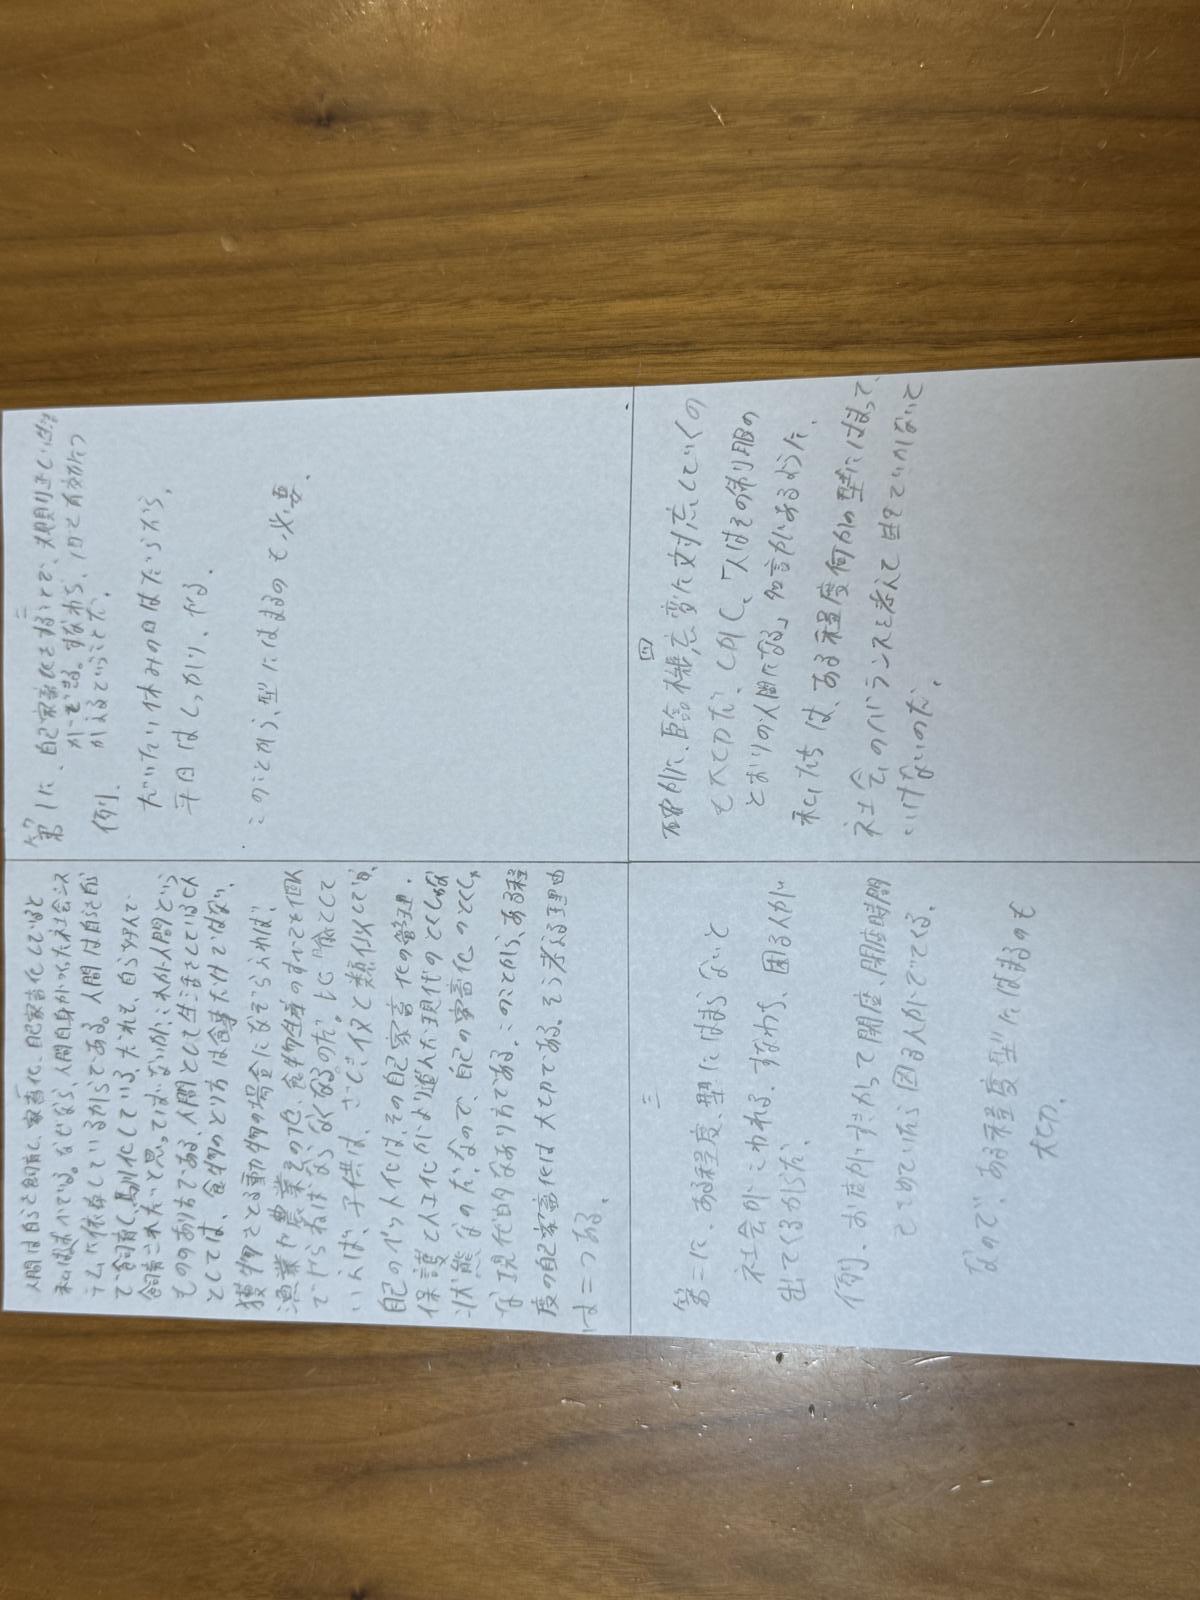 一
人間は自らを飼育し、家畜化、自己家畜化していると
私は最近考えている。なぜなら、人間自身がつくった社会シス
テムに依存しているからである。人間は自らを自らの手
で飼育し、馴化している。だれも、自ら好んで
飼育されたいと思ってはいないが、これが人間という
もののあり方である。人間として生活をしているヒト
としては、食物のとり方は食事だけではない。
獲物をとる動物の場合になぞらえれば、
漁業や農業の他、食物生産のすべてを個人
でやらねばならなくなるのだ。比喩として
いえば、子供は、さしさ 仪と類似している。
自己のペット化は、その自己家畜化の管理、
保護と人工化がより進んだ現代のヒトとしての
状態なのだ。なので、自己の家畜化のヒトとし
な現代的なあり方である。このことから、ある程
度の自己家畜化は大切である。そう考える理由
は二つある。
二
第1に、自己家畜化をすることで、規則正しい生活
ができる。すなわち、1日を有効につ
かえるということだ。
例、
だいたい休みの日はだらだら、
平日はしっかり、やる。
このことから、型にはまるのも必要。
三
第二に、ある程度、型にはまらないと
社会がこわれる。すなわち、困る人が
出てくるからだ。
例、お店がいすわって開店、閉店時間
をきめていたら困る人がでてくる。
なので、ある程度型にはまるのも
大切。
四
確かに、臨機応変に対応していくの
も大切だ。しかし、「人はその制服の
とおりの人間になる」名言があるように、
私たちは、ある程度何かの型にはまって、
社会のバランスを考えて生きていかないと
いけないのだ。